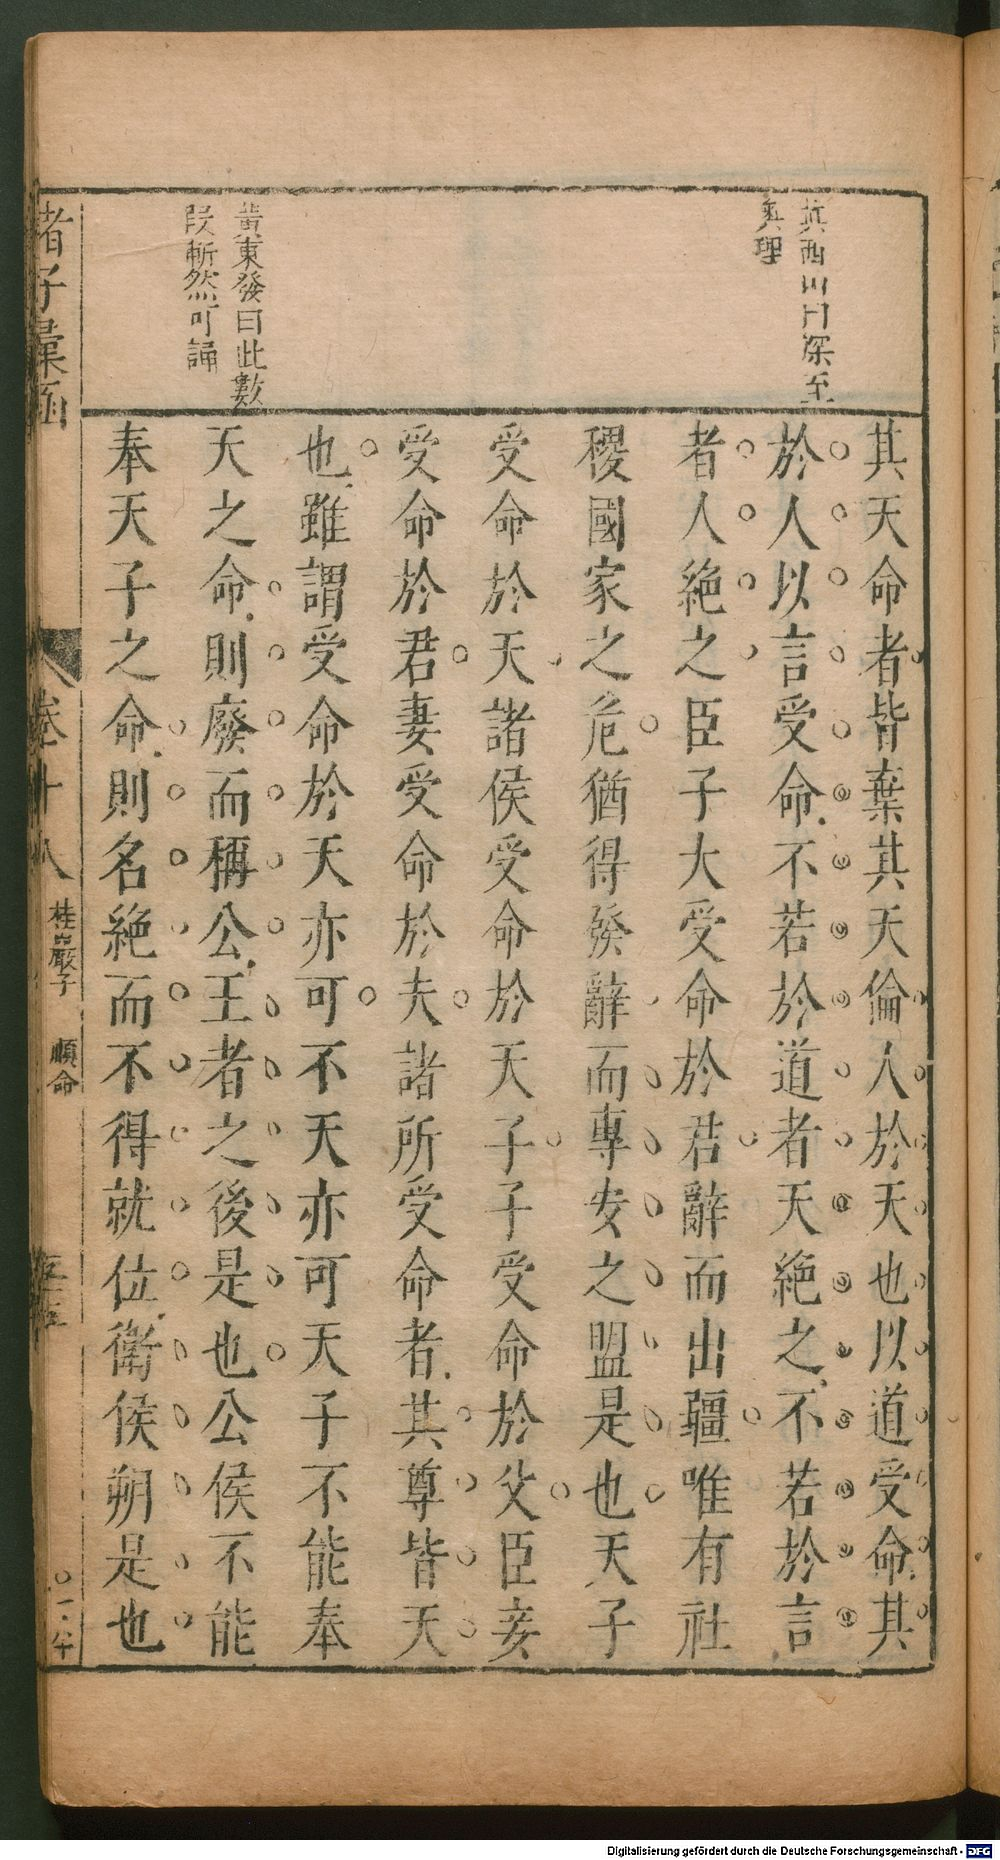 真西山曰深至
奧理
黃東發曰此數
段斬然可誦
其天命者皆棄其天倫人於天也以道受命其
於人以言受命不若於道者天絕之不若於言
者人絕之臣子大受命於君辭而出疆唯有社
稷國家之危猶得發辭而專安之盟是也天子
受命於天諸侯受命於天子子受命於父臣妾
受命於君妻受命於夫諸所受命者其尊皆天
也雖謂受命於天亦可不天亦可天子不能奉
天之命則廢而稱公王者之後是也公侯不能
奉天子之命則名絕而不得就位衛侯朔是也
諸子彙函
卷十八
桂巖子
順命
Digitalisierung gefördert durch die Deutsche Forschungsgemeinschaft - DFG